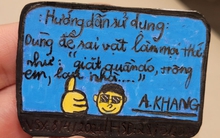 Hướng dẫn sử dụng:
Dùng để sai vặt làm mọi thứ
như: "giặt quần áo, trông
em, lau nhà..."
A. KHANG